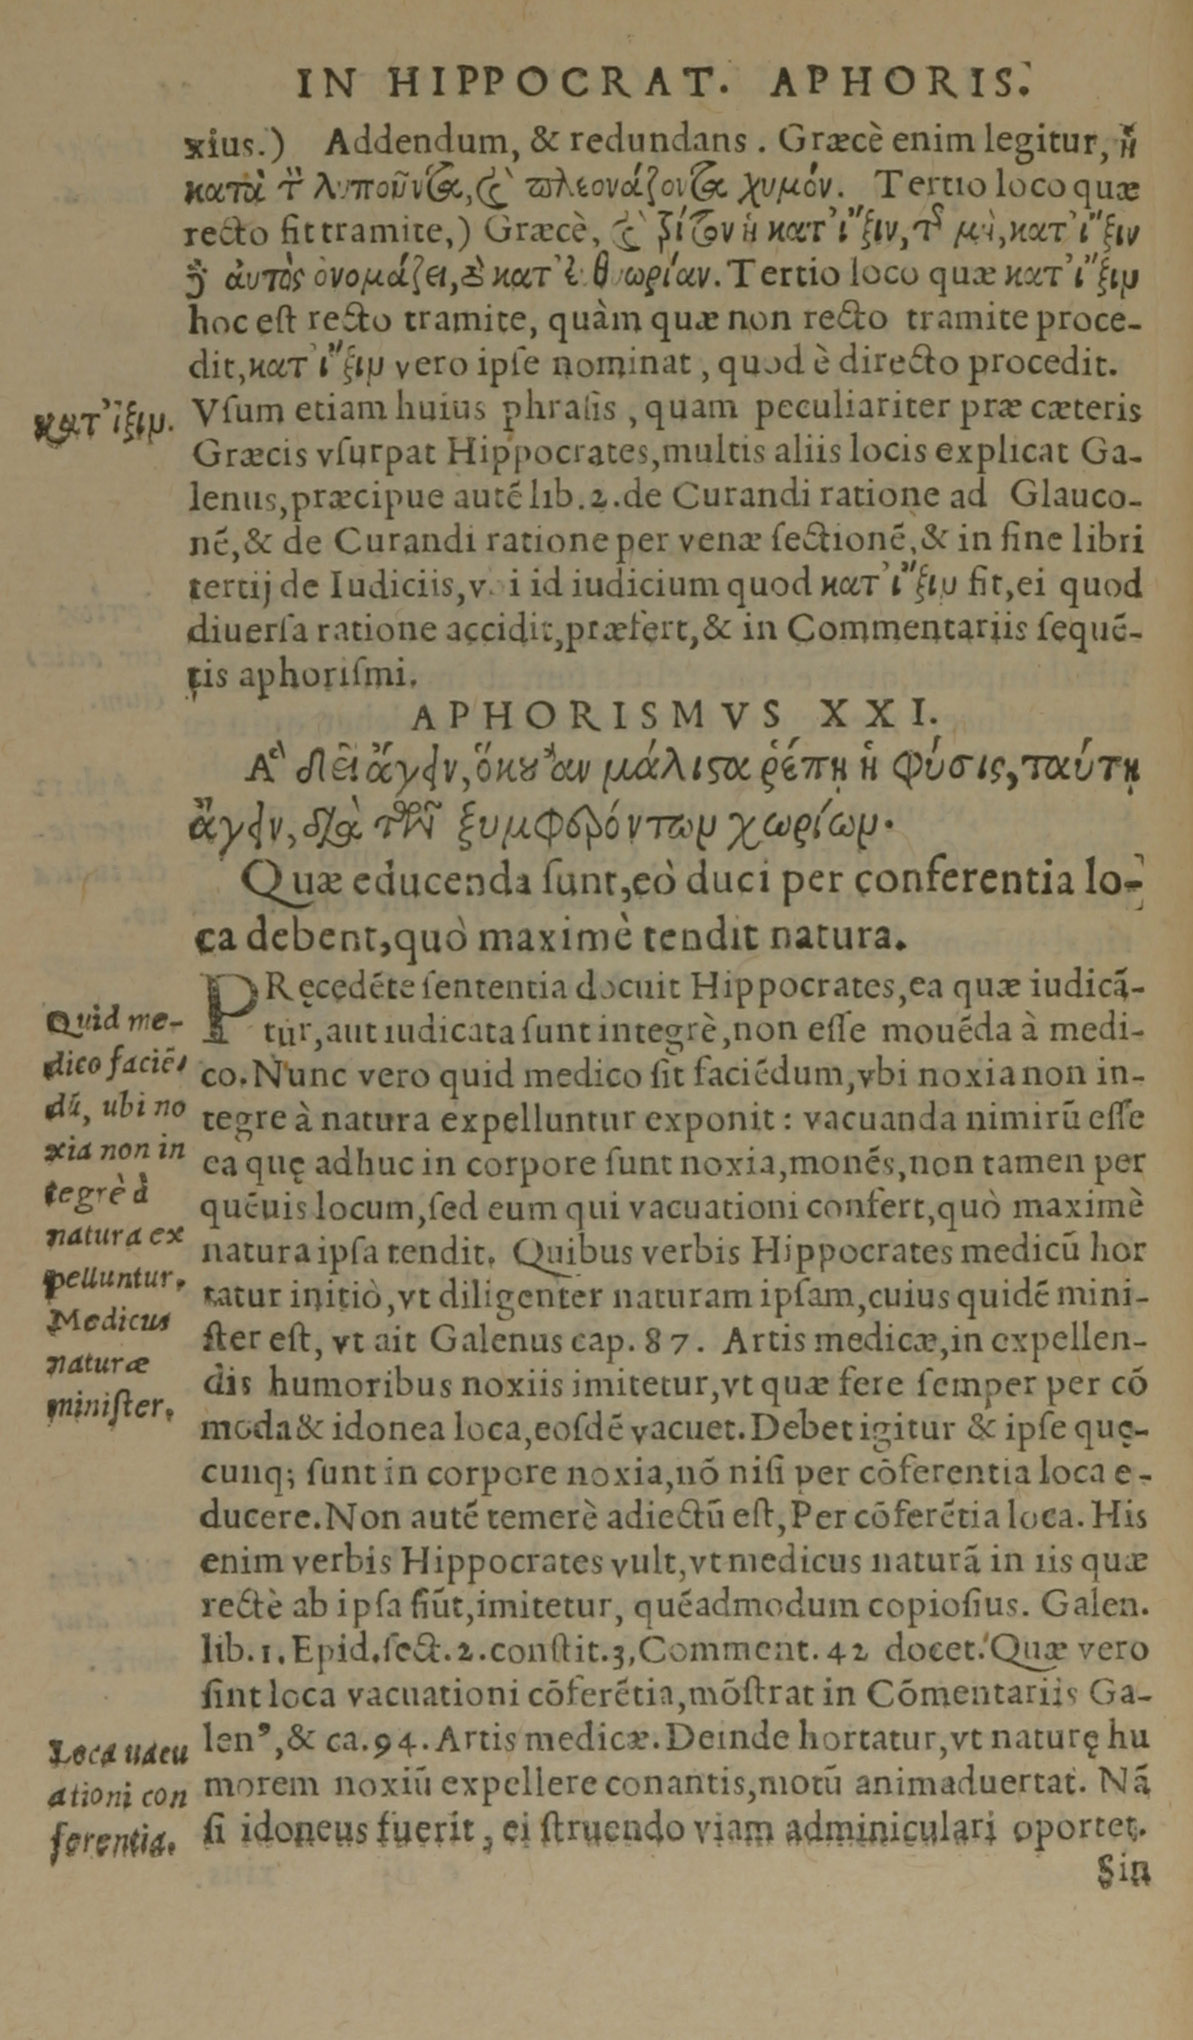 IN HIPPOCRAT. APHORIS.
xius.) Addendum, & redundans. Græcè enim legitur, ἢ
κατὰ τὸν λυποῦντα, καὶ πλεονάζοντα χυμόν. Tertio loco quæ
recto fit tramite,) Græcè, καὶ τρίτον ἡ κατ' ἴξιν, τῆς μὴ, κατ' ἴξιν
αὐτὸς ὀνομάζει, θεωρίαν. Tertio loco quæ κατ' ἴξιν
hoc est recto tramite, quàm quæ non recto tramite proce-
dit, κατ' ἴξιν vero ipse nominat, quod è directo procedit.
κατ' ἴξιν.
Vsum etiam huius phrasis, quam peculiariter præ cæteris
Græcis vsurpat Hippocrates, multis aliis locis explicat Ga-
lenus, præcipue autē lib. 2. de Curandi ratione ad Glauco-
nē, & de Curandi ratione per venæ sectionē, & in fine libri
tertij de Iudiciis, id iudicium quod κατ' ἴξιν fit, ei quod
diuersa ratione accidit, præfert, & in Commentariis sequē-
tis aphorismi.
APHORISMVS XXI.
Ἃ δεῖ ἄγειν, ὅκου ἂν μάλιστα ῥέπῃ ἡ φύσις, ταύτῃ
ἄγειν, διὰ τῶν ξυμφερόντων χωρίων.
Quæ educenda sunt, eò duci per conferentia lo-
ca debent, quò maximè tendit natura.
PRęcędēte sententia docuit Hippocrates, ea quæ iudicā-
tur, aut iudicata sunt integrè, non esse mouēda à medi-
co. Nunc vero quid medico sit faciēdum, vbi noxia non in-
tegre à natura expelluntur exponit: vacuanda nimirū esse
ea quę adhuc in corpore sunt noxia, monēs, non tamen per
quēuis locum, sed eum qui vacuationi confert, quò maximè
natura ipsa tendit. Quibus verbis Hippocrates medicū hor
tatur initiò, vt diligenter naturam ipsam, cuius quidē mini-
ster est, vt ait Galenus cap. 87. Artis medicæ, in expellen-
dis humoribus noxiis imitetur, vt quæ fere semper per cō
moda & idonea loca, eosdē vacuet. Debet igitur & ipse quę-
cunq; sunt in corpore noxia, nō nisi per cōferentia loca e-
ducere. Non autē temerè adiectū est, Per cōferētia loca. His
enim verbis Hippocrates vult, vt medicus naturā in iis quæ
rectè ab ipsa fiūt, imitetur, quēadmodum copiosius. Galen.
lib. 1. Epid. sect. 2. constit. 3, Comment. 42 docet. Quæ vero
sint loca vacuationi cōferētia, mōstrat in Cōmentariis Ga-
lenꝰ, & ca. 94. Artis medicæ. Deinde hortatur, vt naturę hu
morem noxiū expellere conantis, motū animaduertat. Nā
si idoneus fuerit, ei struendo viam adminiculari oportet.
Sin
Quid me-
dico faciē-
dū, ubi no
xia non in
tegrè à
natura ex
pelluntur.
Medicus
naturæ
minister.
Loca uacu
ationi con
ferentia.